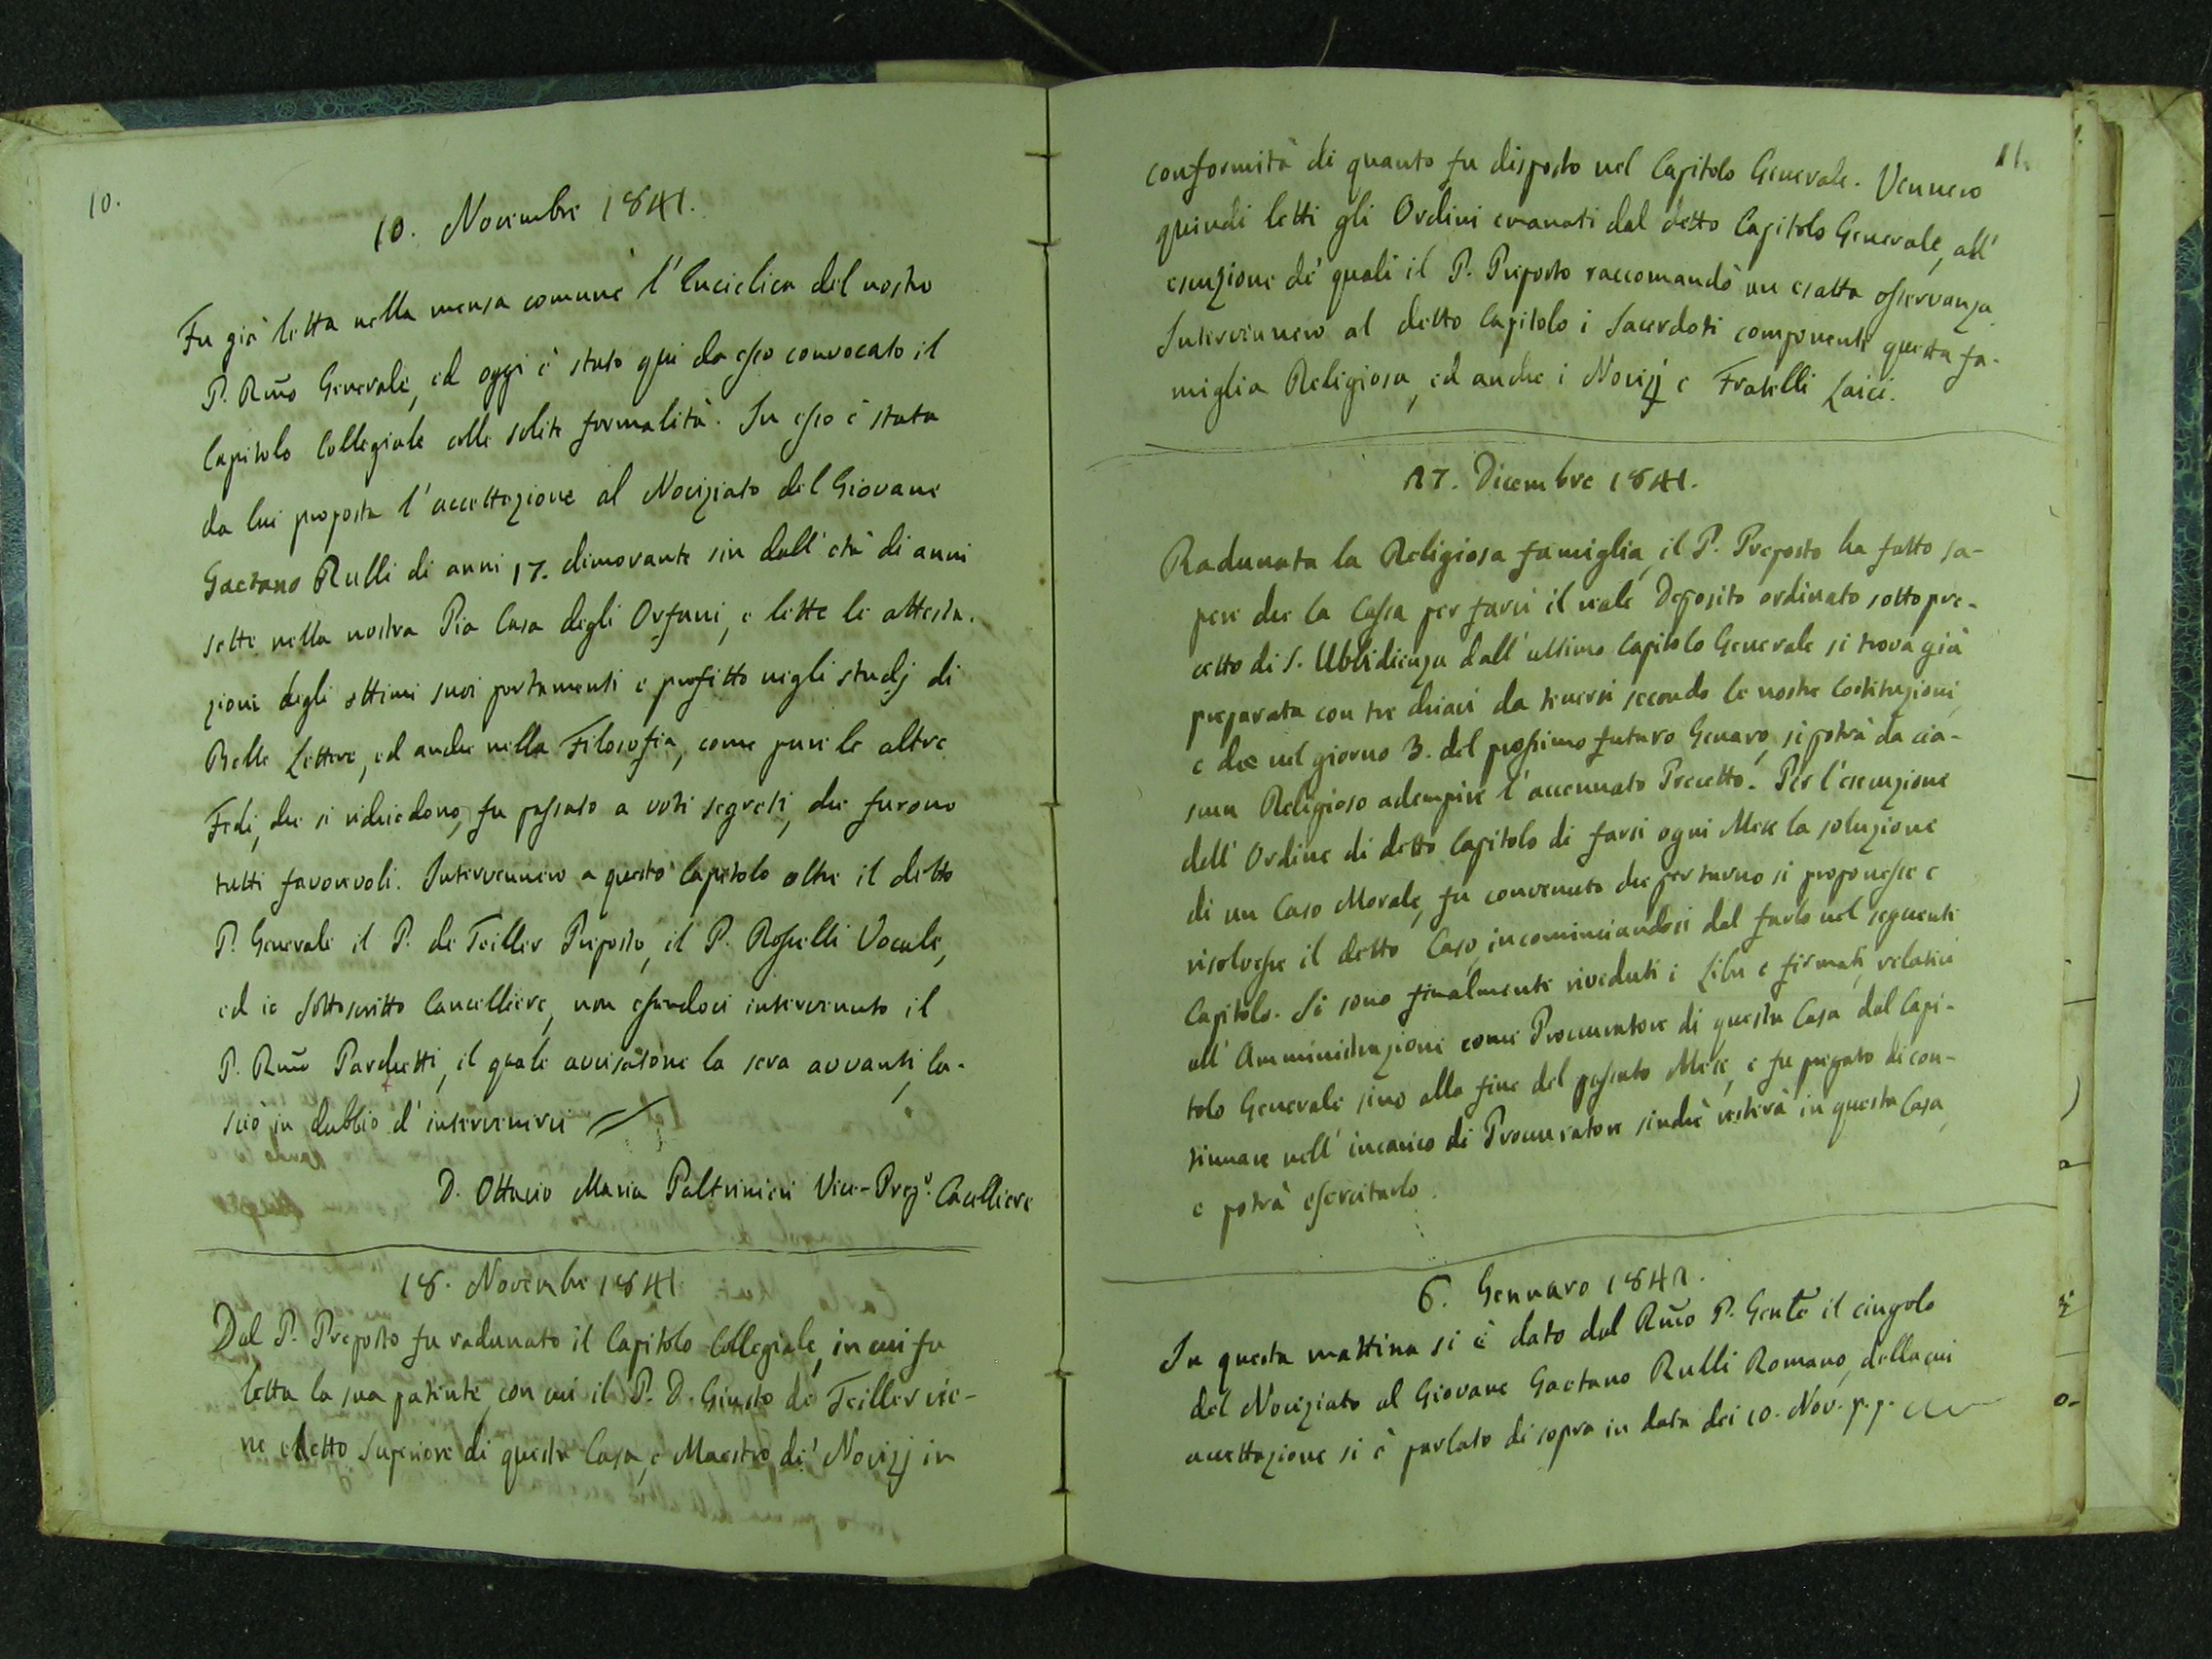 10.
10. Novembre 1841.
Fu già letta nella mensa comune l'Enciclica del nostro
P. Rmo Generale, ed oggi è stato qui da esso convocato il
Capitolo Collegiale colle solite formalità. In esso è stata
da lui proposta l'accettazione al Noviziato del Giovane
Gaetano Rulli di anni 17. dimorante sin dall'età di anni
sette nella nostra Pia Casa degli Orfani, e lette le attesta-
zioni degli ottimi suoi portamenti e profitto negli studj di
Belle Lettere, ed anche nella Filosofia, come pure le altre
Fedi, che si richiedono, fu passato a voti segreti, che furono
tutti favorevoli. Intervennero a questo Capitolo oltre il detto
P. Generale il P. de Teiller Preposto, il P. Rosselli Vocale,
ed io Sottoscritto Cancelliere, non essendoci intervenuto il
P. Rmo Parchetti, il quale avvisatone la sera avvanti, la-
sciò in dubbio d'intervenirvi
D. Ottavio Maria Paltrinieri Vice-Prep.o Cacelliere
18. Novembre 1841
Dal P. Preposto fu radunato il Capitolo Collegiale, in cui fu
letta la sua patente, con cui il P. D. Giusto de Teiller vie-
ne eletto Superiore di questa Casa, e Maestro de' Novizj in
11.
conformità di quanto fu disposto nel Capitolo Generale. Vennero
quindi letti gli Ordini emanati dal detto Capitolo Generale, all'
esecuzione de' quali il P. Preposto raccomandò un esatta osservanza
Intervennero al detto Capitolo i Sacerdoti componenti questa fa-
miglia Religiosa, ed anche i Novizj e Fratelli Laici.
27. Dicembre 1841.
Radunata la Religiosa famiglia, il P. Preposto ha fatto sa-
pere che la Cassa per farvi il reale Deposito ordinato sotto pre-
cetto di S. Ubbidienza dall'ultimo Capitolo Generale si trova già
preparata con tre chiavi da tenersi secondo le nostre Costituzioni,
e che nel giorno 3. del prossimo futuro Genaro, si potrà da cia-
scun Religioso adempire l'accennato Precetto. Per l'esecuzione
dell'Ordine di detto Capitolo di farsi ogni Mese la soluzione
di un Caso Morale, fu convenuto che per turno si proponesse e
risolvesse il detto Caso, incominciandosi dal farlo nel seguente
Capitolo. Si sono finalmente riveduti i Libri e firmati, relativi
all'Amministrazione come Procuratore di questa Casa dal Capi-
tolo Generale sino alla fine del passato Mese, e fu pregato di con-
tinuare nell'incarico di Procuratore sinchè resterà in questa Casa,
e potrà esercitarlo.
6. Gennaro 1842.
In questa mattina si è dato dal Rmo P. Genle il cingolo
del Noviziato al Giovane Gaetano Rulli Romano, della cui
accettazione si è parlato di sopra in data dei 10. Nov. p.p.